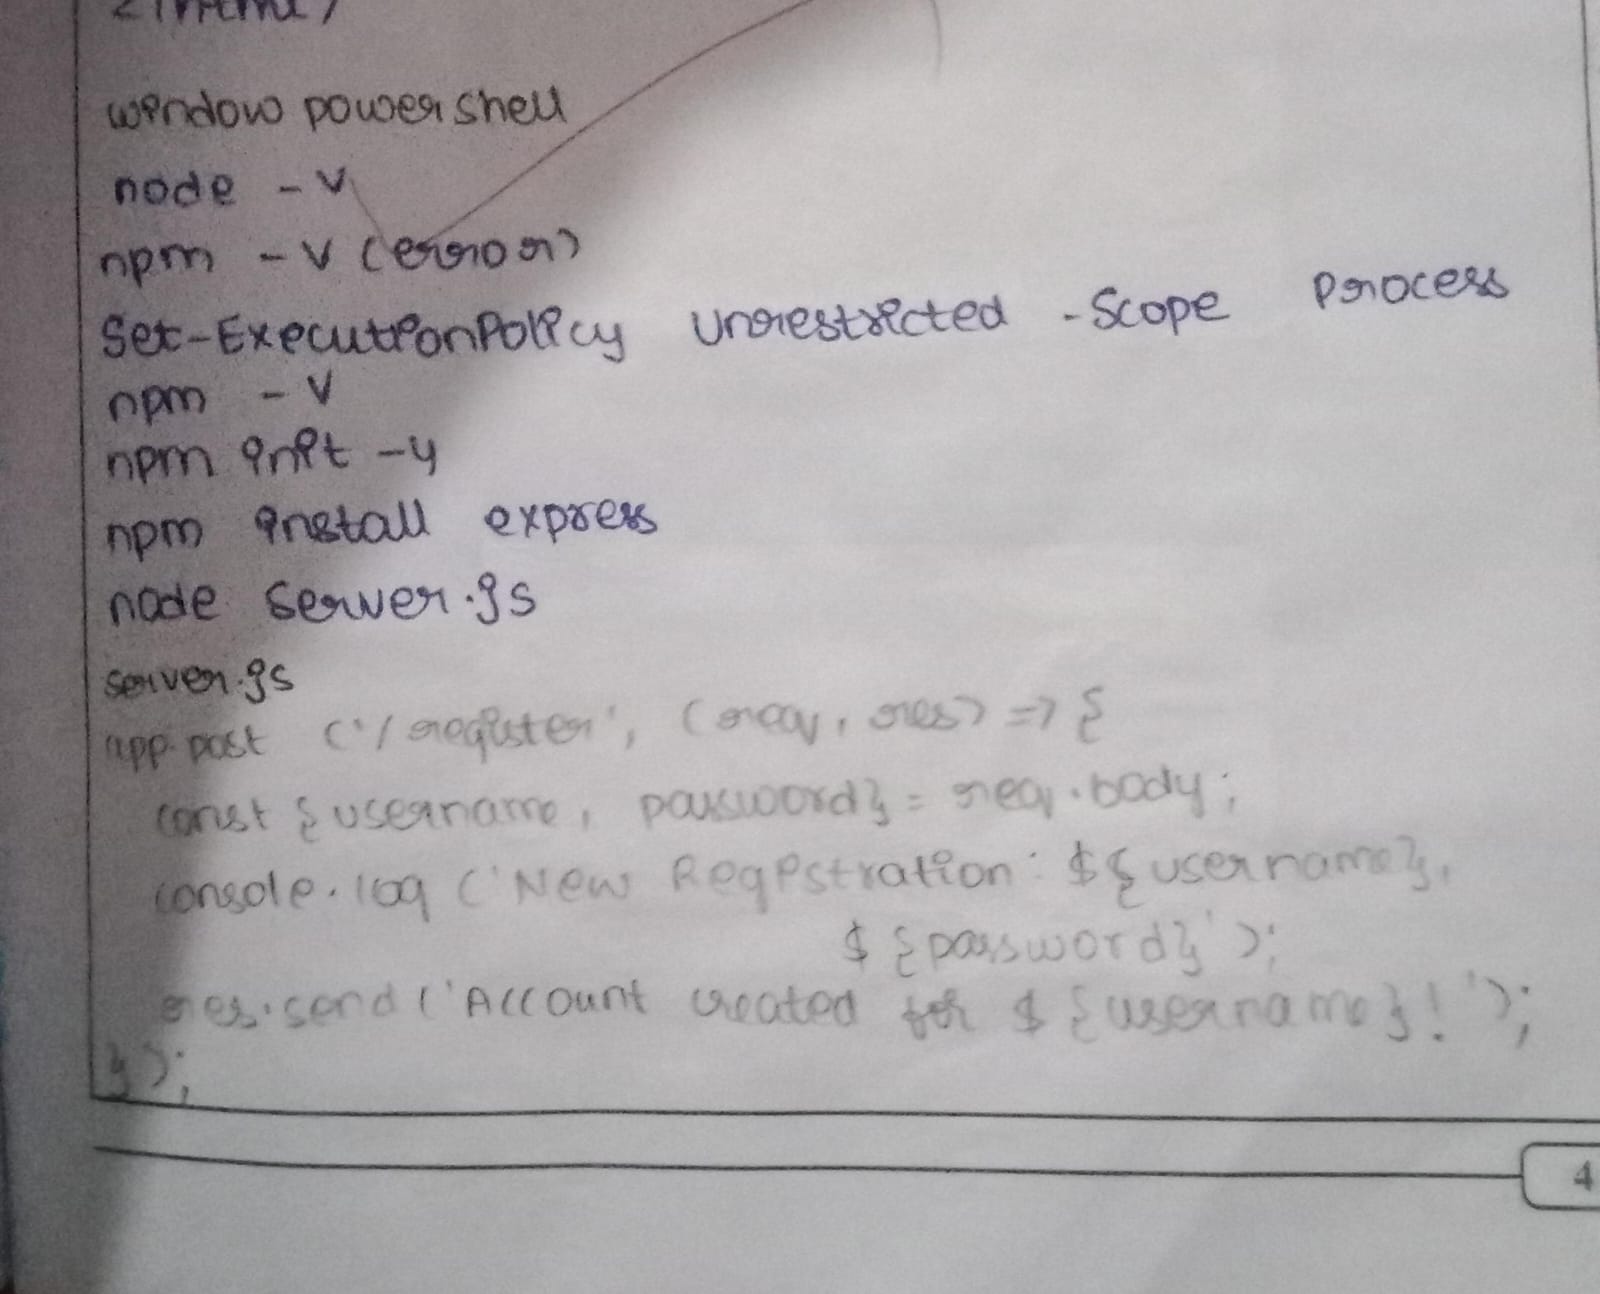 window powershell
node -v
npm -v (error)
Set-ExecutionPolicy Unrestricted -Scope Process
npm -v
npm init -y
npm install express
node server.js
server.js
app.post ('/register', (req, res) => {
const {username, password} = req.body;
console.log ('New Registration: ${username},
${password}');
res.send ('Account created for ${username}!');
});
4